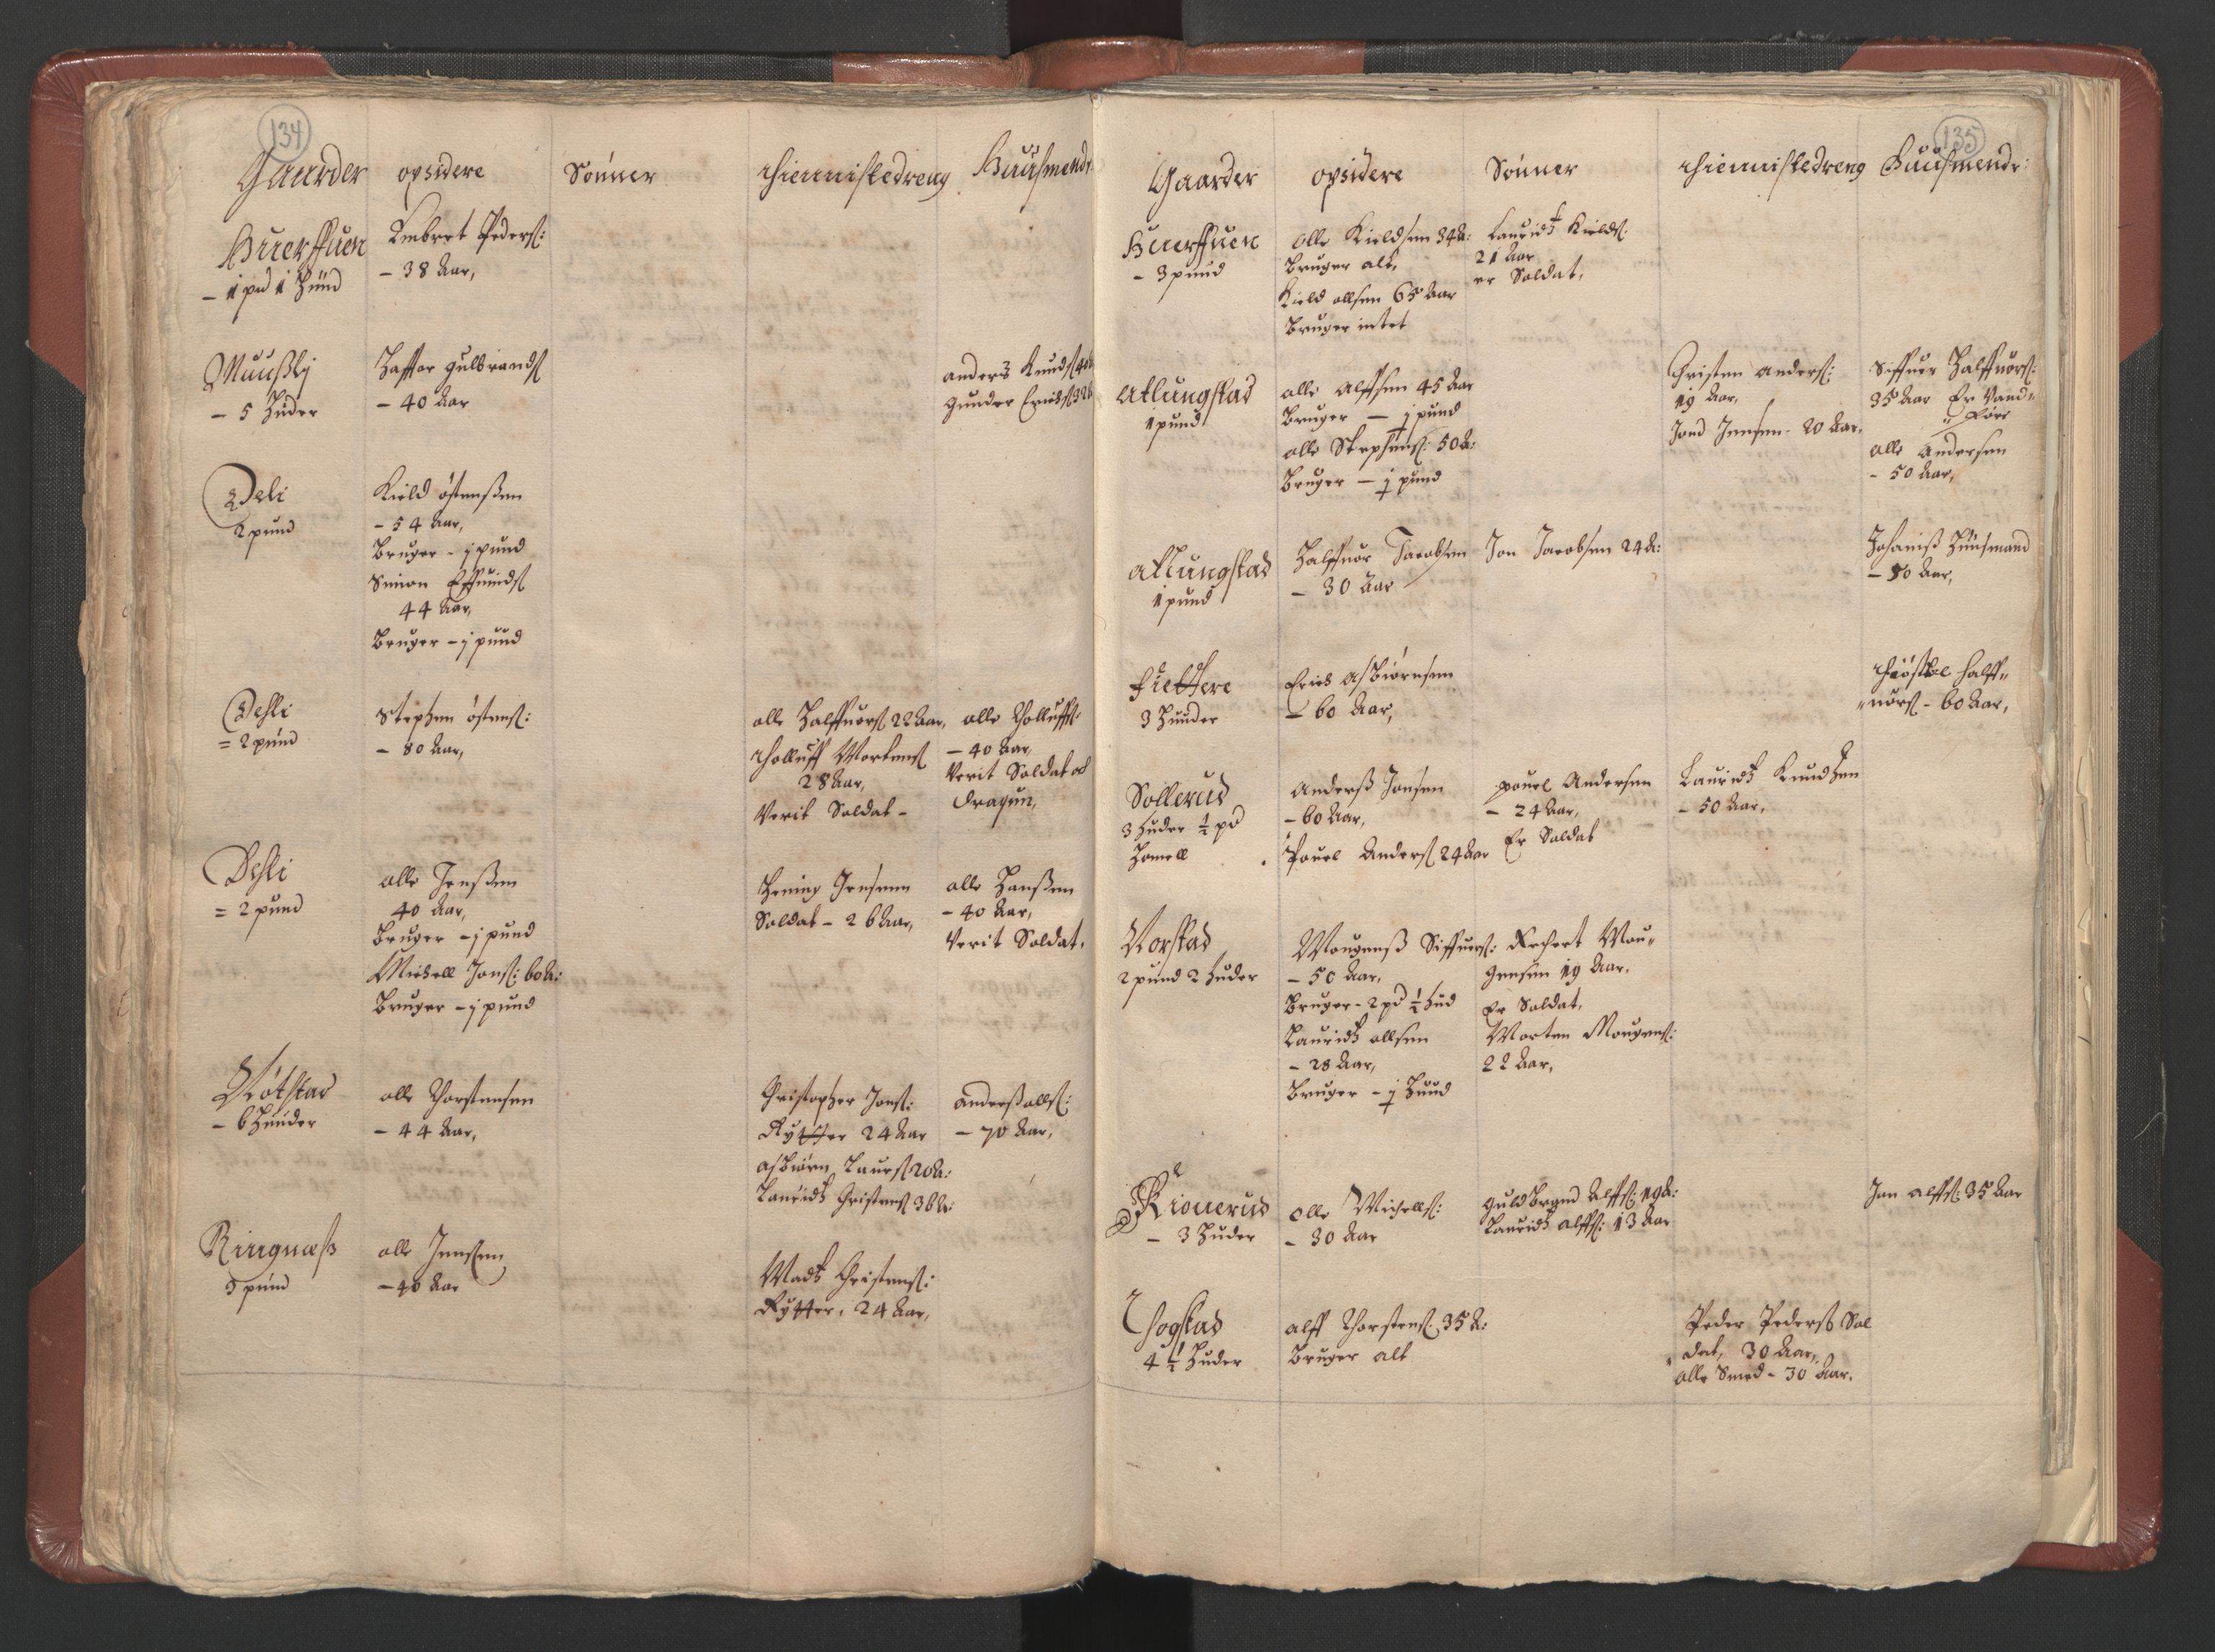 134
Gaarder opsidere Sönner thiennistedreng Huusmendt
Huerffuen
- 1 pd 1 Hund
Embret Peders:
- 38 Aar,
Muußly
- 5 Huder
Haffor gulbrands
- 40 Aar
anders Knuds 40
gunder Erichs 32
Deli
2 pund
Kield östensen
- 54 Aar,
Bruger - j pund
Simon
44 Aar,
Bruger - j pund
Dehli
= 2 pund
Stephen östens:
- 80 Aar,
olle Halffuors 22 Aar,
Tholluff Mortens
28 Aar,
Verit Soldat -
olle Tholluffs:
- 40 Aar,
Verit Soldat och
dragun,
Dehli
= 2 pund
olle Jensen
40 Aar,
Bruger - j pund
Michell Jons: 60 A:
Bruger - j pund
Hening Jensenn
Soldat - 26 Aar,
olle Hansen
- 40 Aar,
Verit Soldat.
Nötstad
- 6 Huuder
olle Thorstensen
- 44 Aar,
Christopher Jons:
Rytter 24 Aar
asbiörn Laurs 20 A:
Lauridtz Christens 36 A:
anders olls:
- 70 Aar,
Ringnæß
3 pund
olle Jensen
- 40 Aar
Madtz Christens:
Rytter, 24 Aar,
135
Gaarder opsidere Sönner thiennistedreng Huusmendr:
Huerffuen
- 3 pund
olle Kieldsen 34 A:
Bruger alt,
Kield ollsen 65 Aar
Bruger intet
Lauridtz Kields:
21 Aar
er Soldat,
Atlungstad
1 pund
olle Alffsen 45 Aar
Bruger - j pund
olle Stephens: 50 A:
Bruger - j pund
Christen anders:
19 Aar,
Jond Jensen - 20 Aar,
Siffuer Halffuors:
35 Aar Er Vand=
före
olle Andersen
- 50 Aar,
Atlungstad
1 pund
Halffuor Jacobsen
- 30 Aar
Jon Jacobsen 24 A:
Johanis Huusmand
- 50 Aar,
fiettere
3 Huuder
Erich Asbiörnsen
- 60 Aar,
halff=
=uors - 60 Aar,
Sollerud
3 Huder ½ pd
Anders Jonsen
- 60 Aar,
Pouel Anders 24 Aar
pouel Andersen
- 24 Aar,
Er Soldat
Lauridtz Knudsen
- 50 Aar,
Norstad
2 pund 2 Huder
Mougens Siffuers:
- 50 Aar,
Bruger - 2 pd ½ Hud
Lauridtz ollsen
- 28 Aar,
Bruger - j Huud
Mou=
gensen 19 Aar,
Er Soldat,
Morten Mougens:
22 Aar,
- 3 Huder
olle Michells:
- 30 Aar
guldbrand Alffs: 19 A:
Lauridtz alffs: 13 Aar
Jon alffs: 35 Aar
Thogstad
4 ½ Huder
alff Thorstens: 35 A:
Bruger alt
Peder Peders Sol
dat, 30 Aar,
olle Smed - 30 Aar.